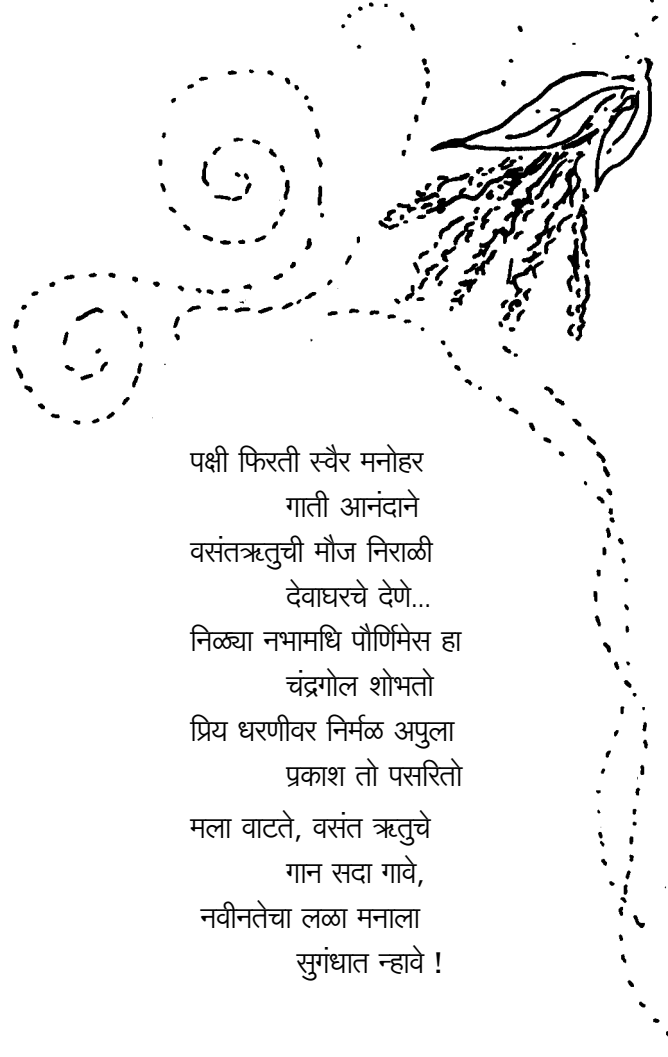 पक्षी फिरती स्वैर मनोहर
गाती आनंदाने
वसंतऋतुची मौज निराळी
देवाघरचे देणे...
निळ्या नभामधि पौर्णिमेस हा
चंद्रगोल शोभतो
प्रिय धरणीवर निर्मळ अपुला
प्रकाश तो पसरितो
मला वाटते, वसंत ऋतुचे
गान सदा गावे,
नवीनतेचा लळा मनाला
सुगंधात न्हावे !